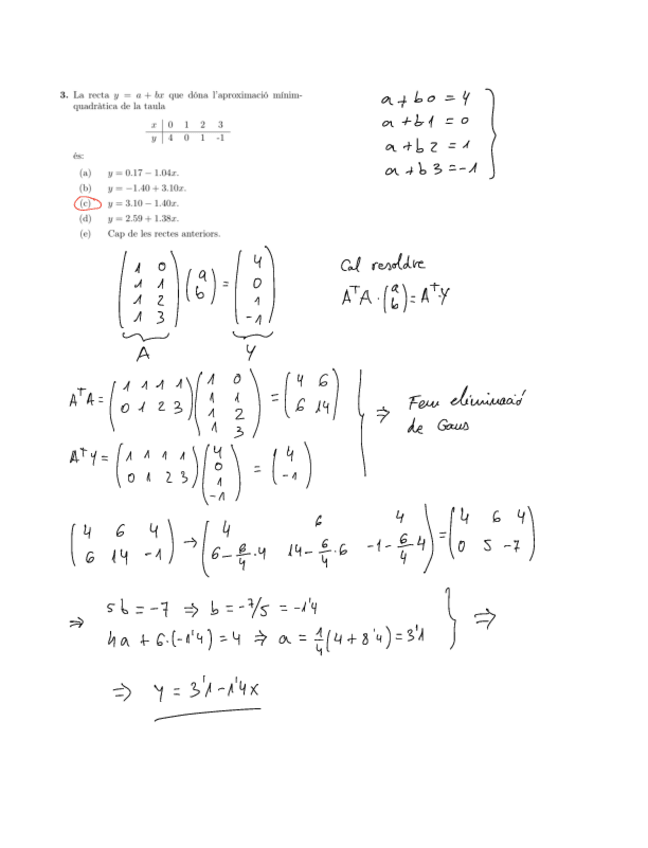 3. La recta y = a + bx que dóna l'aproximació mínim-
quadràtica de la taula
x | 0 1 2 3
y | 4 0 1 -1
és:
(a) y = 0.17 − 1.04x.
(b) y = −1.40 + 3.10x.
(c) y = 3.10 − 1.40x.
(d) y = 2.59 + 1.38x.
(e) Cap de les rectes anteriors.
a + b0 = 4
a + b1 = 0
a + b2 = 1
a + b3 = -1
(1 0; 1 1; 1 2; 1 3) (a; b) = (4; 0; 1; -1)
A Y
Cal resoldre
AᵀA · (a; b) = Aᵀ·Y
AᵀA = (1 1 1 1; 0 1 2 3) (1 0; 1 1; 1 2; 1 3) = (4 6; 6 14)
AᵀY = (1 1 1 1; 0 1 2 3) (4; 0; 1; -1) = (4; -1)
⇒ Fem eliminació
de Gaus
(4 6 4; 6 14 -1) → (4 6 4; 6-6/4·4 14-6/4·6 -1-6/4·4) = (4 6 4; 0 5 -7)
⇒ 5b = -7 ⇒ b = -7/5 = -1'4
4a + 6·(-1'4) = 4 ⇒ a = 1/4(4 + 8'4) = 3'1 ⇒
⇒ y = 3'1 - 1'4x